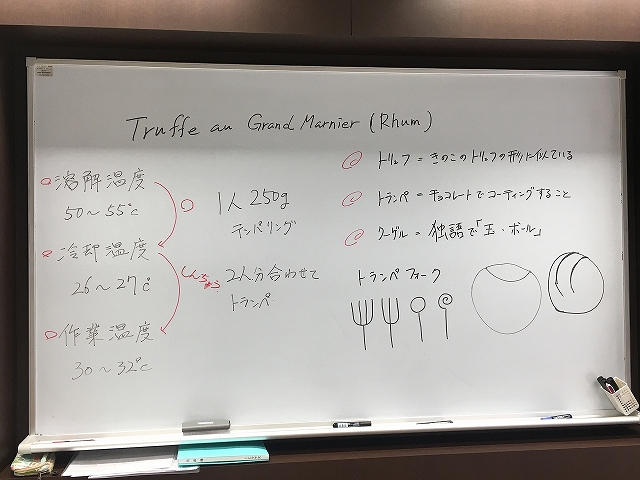 Truffe au Grand Marnier (Rhum)
溶解温度
50～55℃
冷却温度
26～27℃
作業温度
30～32℃
1人 250g
テンパリング
2人分合わせて
トランペ
トリュフ = きのこのトリュフの形に似ている
トランペ = チョコレートでコーティングすること
クーゲル = 独語で「玉・ボール」
トランペフォーク